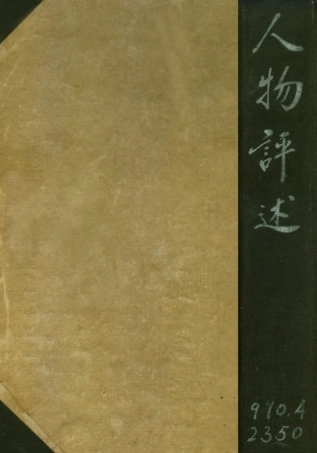 人物評述
990.4
2350